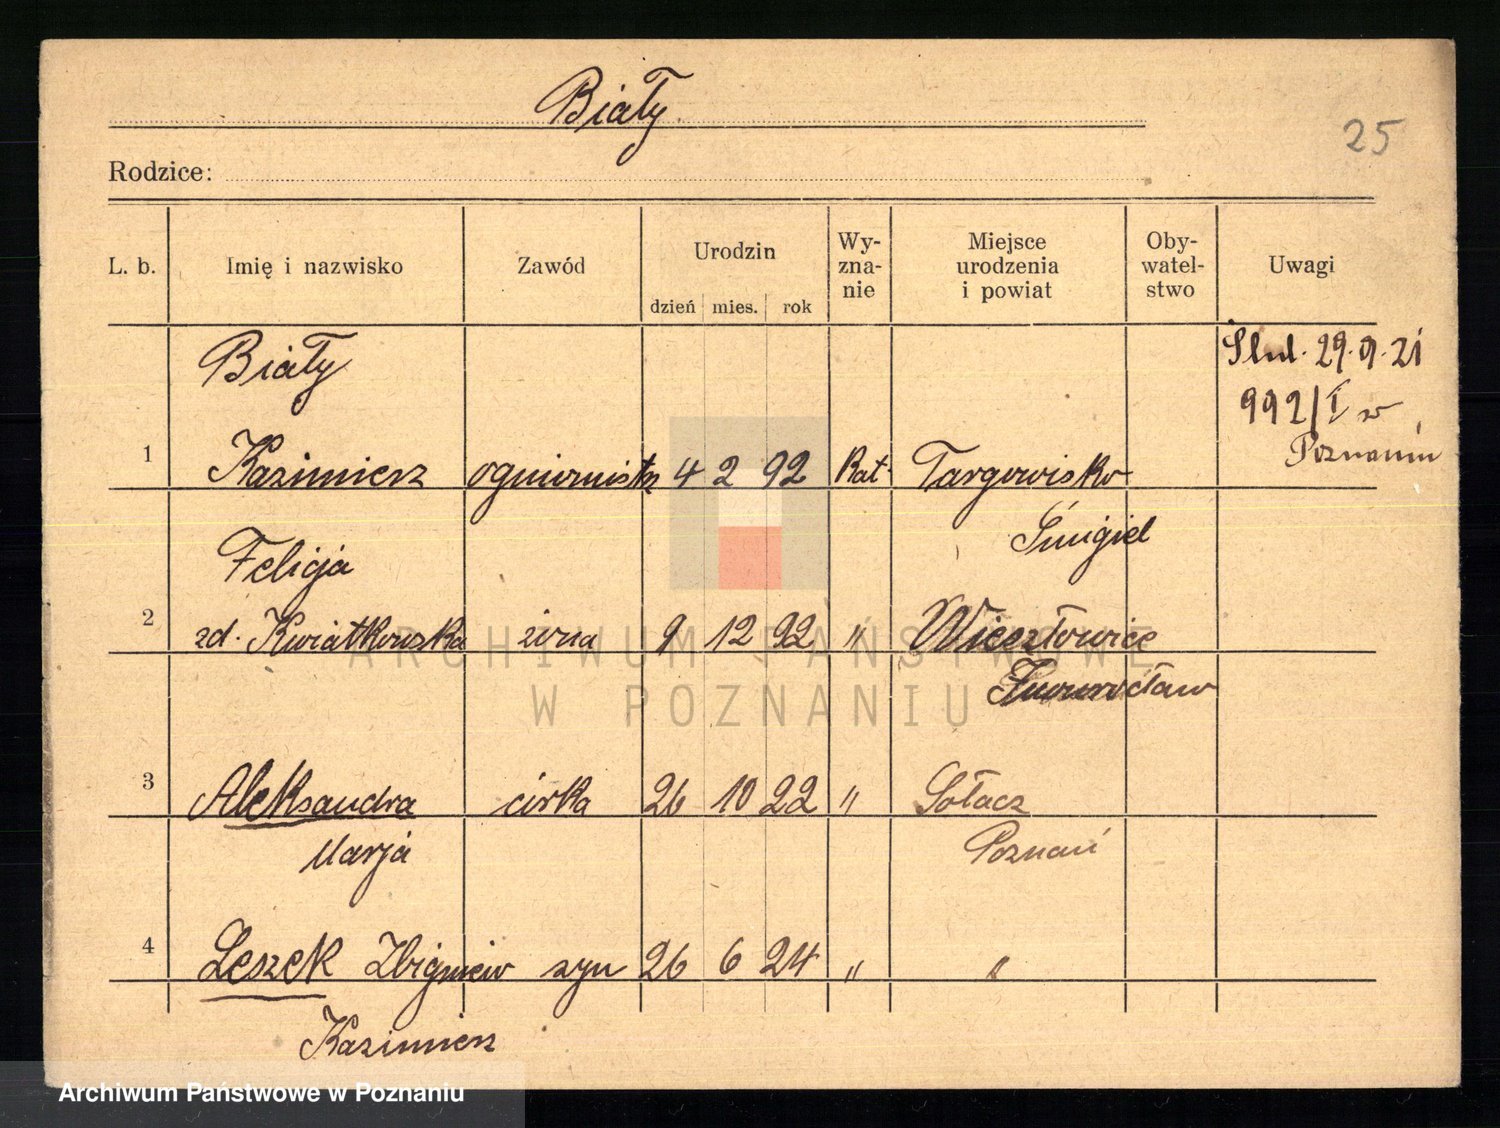 Biały
25
Rodzice:
L. b. Imię i nazwisko Zawód Urodzin dzień mies. rok Wy-zna-nie Miejsce urodzenia i powiat Oby-watel-stwo Uwagi
Biały Ślub. 29.9.21
992/I w
1 Kazimierz ogniomistrz 4 2 92 Kat. Targowisko Poznaniu
Felicja Śmigiel
2 zd. Kwiatkowska żona 9 12 92 " Wieszłowice
Inowrocław
3 Aleksandra córka 26 10 22 " Sołacz
Marja Poznań
4 Leszek Zbigniew syn 26 6 24 " "
Kazimierz
ARCHIWUM PAŃSTWOWE
W POZNANIU
Archiwum Państwowe w Poznaniu